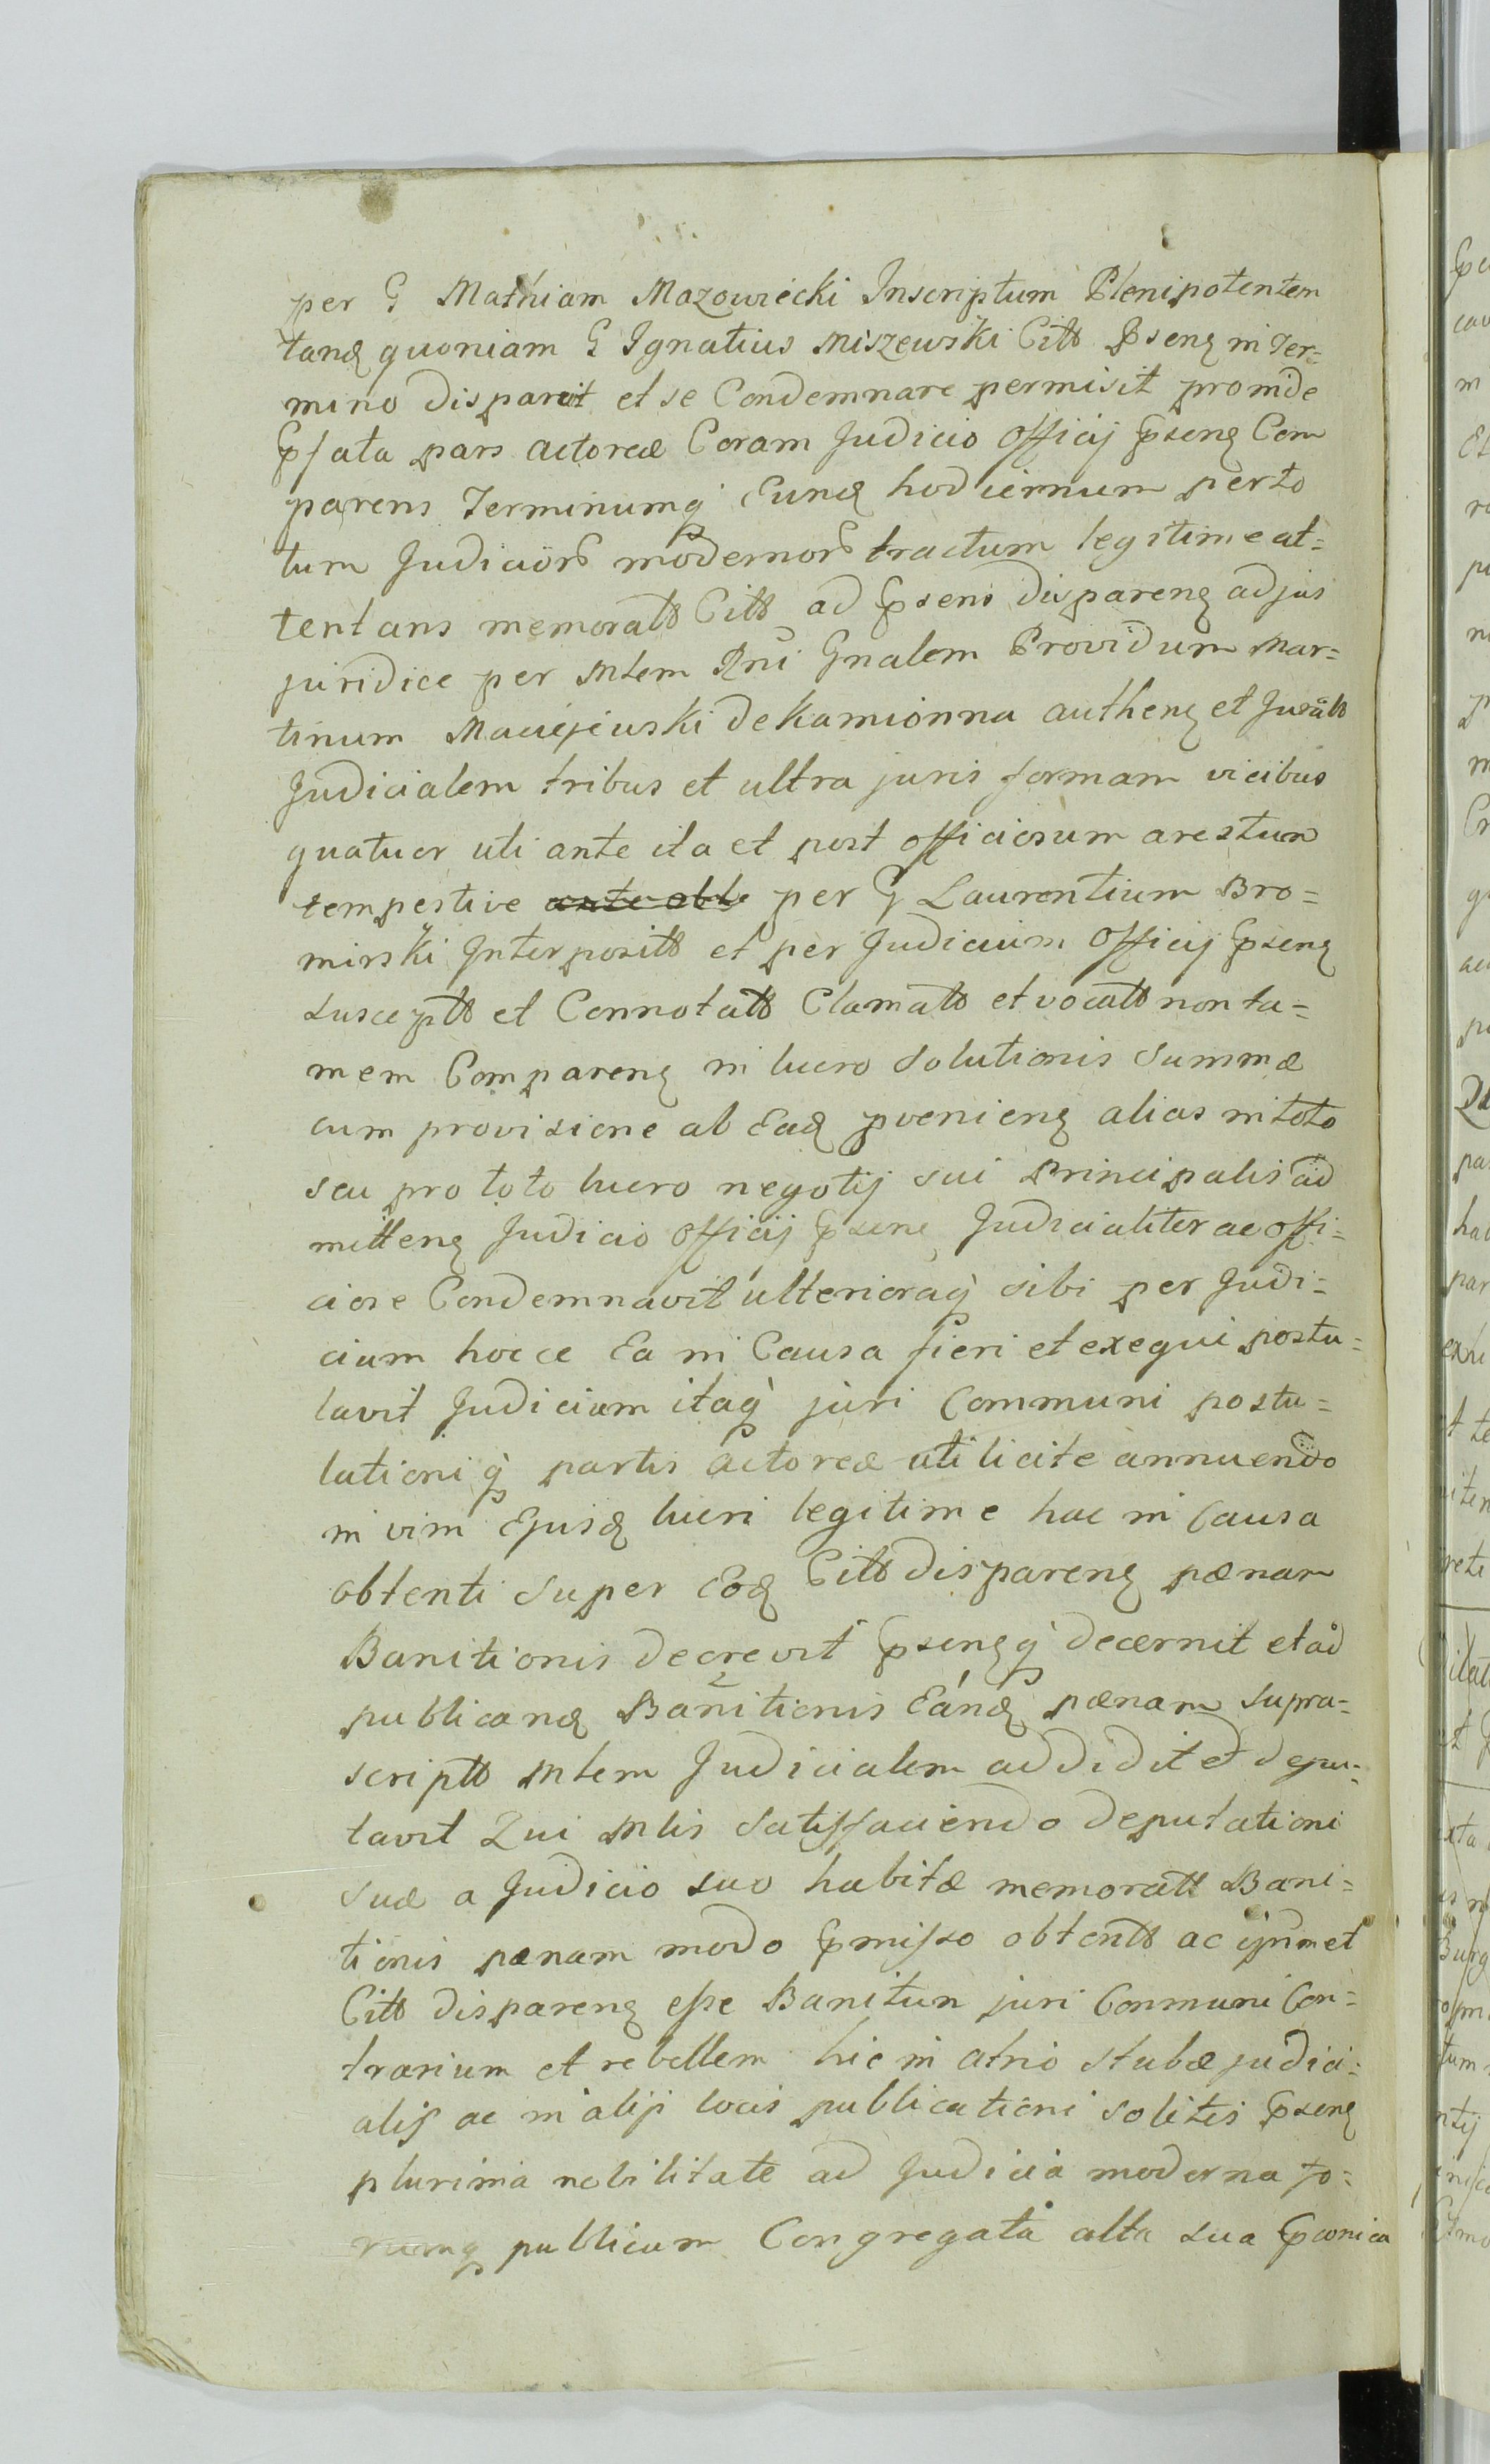 per G Mathiam Mazowiecki Inscriptum Plenipotentem
tanq quoniam G Ignatius Miszewski Citt Psenq in Ter=
mino disparuit et se Condemnare permisit proinde
Pfata pars actorea Coram Judicio Officij Psenq Com
parens Terminumq Eunq hodiernum per to
tum Judicior modernor tractum legitime at=
tentans memoratt Citt ad Psens disparenq ad jus
juridice per Mtem Rni Gnalem Providum Mar=
tinum Maciejewski de Kamionna authenq et Juratt
Judicialem tribus et ultra juris formam vicibus
quatuor uti ante ita et post officiosum arestum
tempestive per G Laurentium Bro=
mirski Interpositt et per Judicium Officij Psenq
susceptt et Connotatt Clamatt et vocatt non ta=
mem Comparenq in lucro solutionis Summæ
cum provisione ab Eadq pvenienq alias in toto
seu pro toto lucro negotij sui Principalis ad
mittenq Judicio Officij Psenq Judicialiter ac offi=
ciose Condemnavit ulterioraq sibi per Judi=
cium hocce Ea in Causa fieri et exequi postu=
lavit Judicium itaq juri Communi postu=
lationi q partis actoreæ uti licite annuendo
in vim Ejusq lucri legitime hac in Causa
obtenti super Eoq Citt disparenq pænam
Banitionis decrevit Psenqq decernit et ad
publicanq Banitionis Eánq pænam supra=
scriptt Mtem Judicialem addidit et depu=
tavit Qui Mtis Satisfaciendo deputationi
suæ a Judicio suo habitæ memoratt Bani=
tionis pænam modo Pmisso obtentt ac ipsumet
Citt disparenq esse Banitum juri Communi Con=
trarium et rebellem hic in atrio stubæ judici=
alis ac in alijs locis publicationi solitis Psenq
plurima nobilitate ad Judicia moderna fo=
rumq publicum Congregata alta sua Pconica